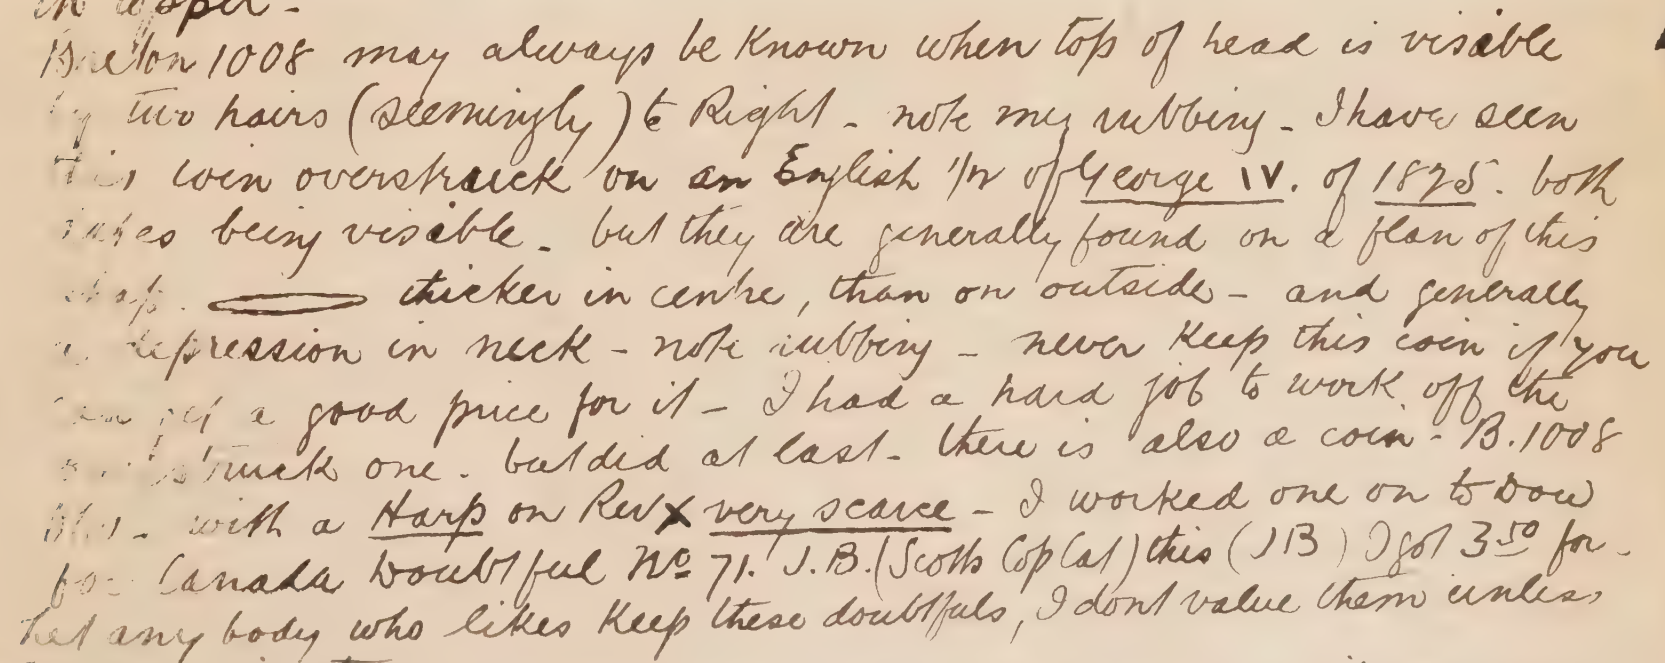 in upper -
Breton 1008 may always be Known when top of head is visible
by two hairs (seemingly) to Right - note my rubbing - I have seen
this coin overstruck on an English 1/2 of George IV. of 1825. both
being visible - but they are generally found on a flan of this
shap. thicker in centre, than on outside - and generally
a depression in neck - note rubbing - never Keep this coin if you
can get a good price for it - I had a hard job to work off the
struck one. but did at last - there is also a coin - B. 1008
with a Harp on Rev X very scarce - I worked one on to Dow
for Canada Doubtful No 71. J.B. (Scotts Cop Cat) this (JB) I got 3.50 for -
Let any body who likes Keep these doubtfuls, I dont value them unless